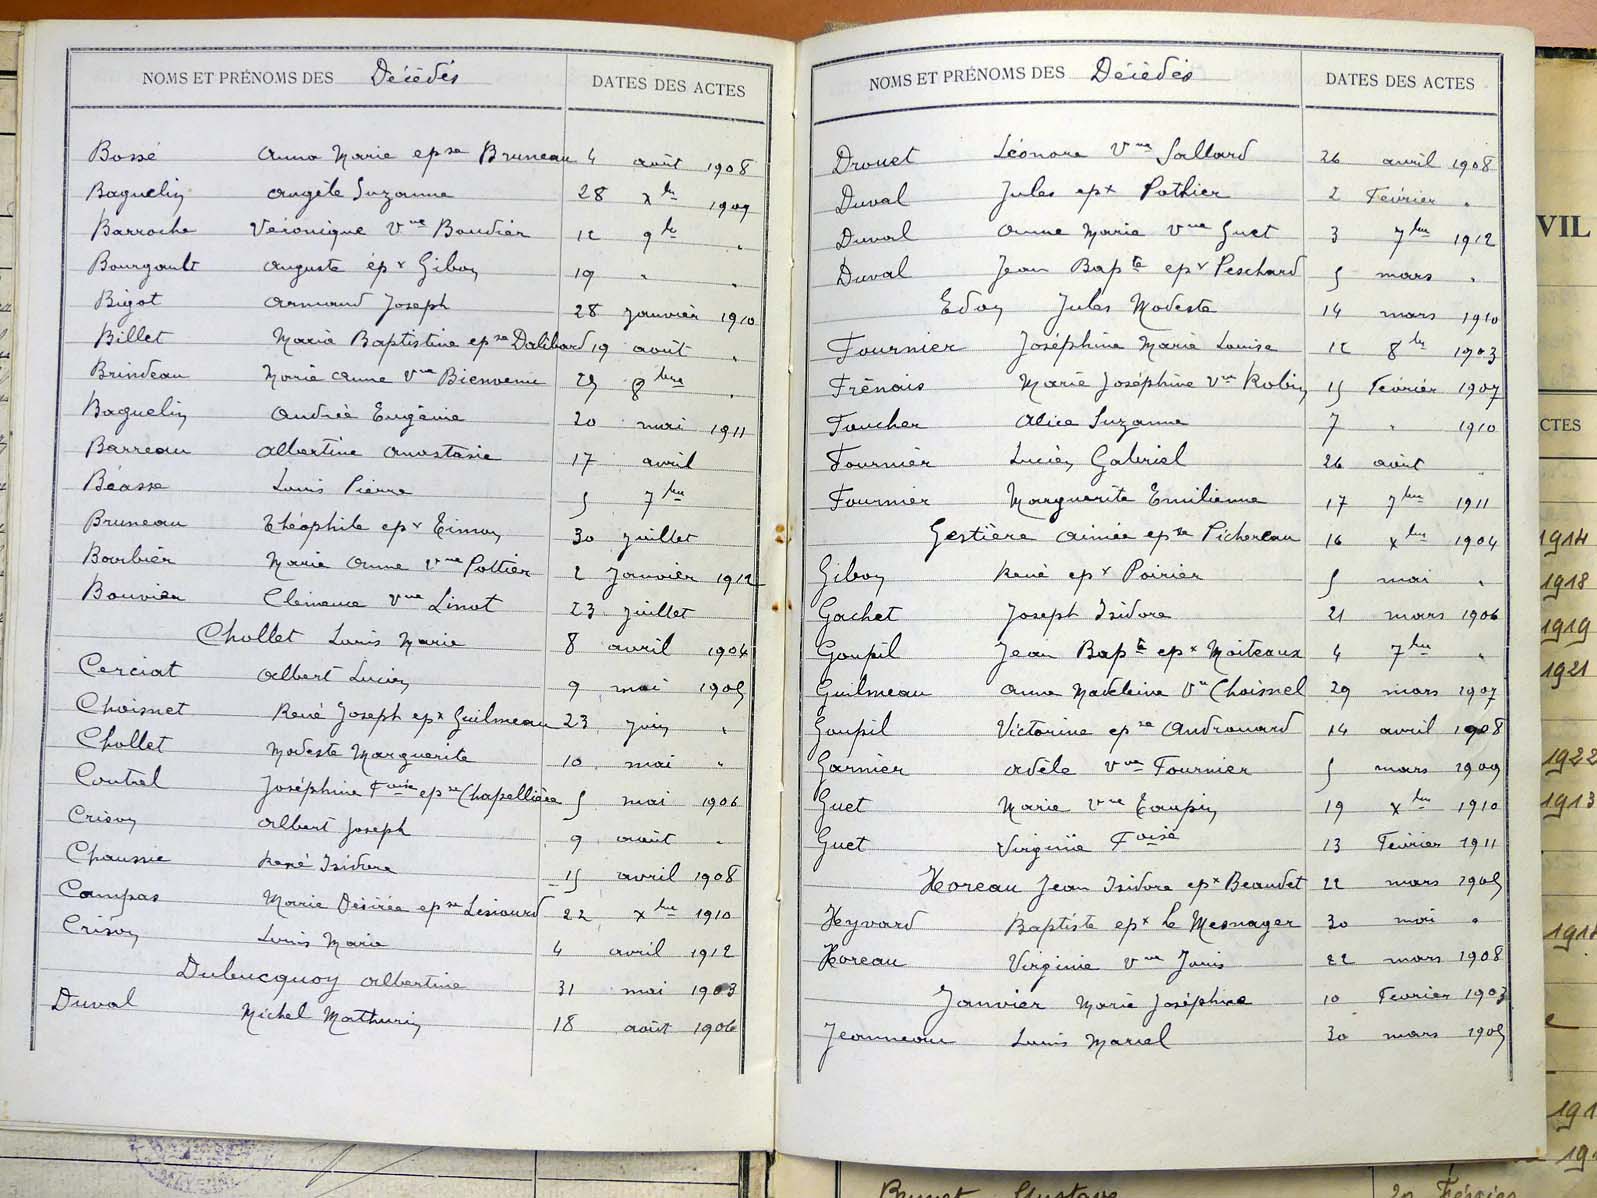 NOMS ET PRÉNOMS DES Décédés DATES DES ACTES
Bossé Anna Marie epse Bruneau 4 août 1908
Baguelin Angèle Suzanne 28 Xbre 1909
Barroche Véronique Vve Boudier 12 9bre "
Bourgault Auguste épx Giboy 19 " "
Bigot Armand Joseph 28 Janvier 1910
Billet Marie Baptistine epse Dalibard 19 août "
Brindeau Marie Anne Vve Bienvenu 25 8bre "
Baguelin Andrée Eugénie 20 mai 1911
Barreau Albertine Anastasie 17 avril
Béasse Louis Pierre 5 7bre
Bruneau Théophile epx Timon 30 juillet
Bourbier Marie Anne Vve Pottier 2 Janvier 1912
Bouvier Clémence Vve Linot 23 juillet
Chollet Louis Marie 8 avril 1904
Cerciat Albert Lucien 9 mai 1905
Choisnet René Joseph epx Guilmeau 23 juin "
Chollet Modeste Marguerite 10 mai "
Coutel Joséphine Foise epse Chapellière 5 mai 1906
Crison Albert Joseph 9 août "
Chaussie René Isidore 15 avril 1908
Campas Marie Désirée epse Lesiourd 22 Xbre 1910
Crison Louis Marie 4 avril 1912
Dubucquoy Albertine 31 mai 1903
Duval Michel Mathurin 18 août 1906
NOMS ET PRÉNOMS DES Décédés DATES DES ACTES
Drouet Léonore Vve Sallard 26 avril 1908
Duval Jules epx Pothier 2 Février "
Duval Anne Marie Vve Guet 3 7bre 1912
Duval Jean Bapte epx Peschard 5 mars "
Edon Jules Modeste 14 mars 1910
Fournier Joséphine Marie Louise 12 8bre 1903
Frénais Marie Joséphine Vve Robin 15 Février 1907
Foucher Alice Suzanne 7 " 1910
Fournier Lucien Gabriel 26 août "
Fournier Marguerite Emilienne 17 7bre 1911
Gestière Aimée epse Pichereau 16 Xbre 1904
Giboy René epx Poirier 5 mai "
Gachet Joseph Isidore 21 mars 1906
Goupil Jean Bapte epx Moiteaux 4 7bre "
Guilmeau Anne Madeleine Ve Choisnel 29 mars 1907
Goupil Victorine epse Androuard 14 avril 1908
Garnier Adèle Vve Fournier 5 mars 1909
Guet Marie Vve Taupin 19 Xbre 1910
Guet Virginie Foise 13 Février 1911
Horeau Jean Isidore epx Beaudet 22 mars 1905
Heyvard Baptiste epx Le Mesnager 30 mai "
Horeau Virginie Vve Jouis 22 mars 1908
Janvier Marie Joséphine 10 Février 1903
Jeanneau Louis Marcel 30 mars 1905
VIL
CTES
1914
1918
1919
1921
1922
1913
Brunet Gustave 20 Février